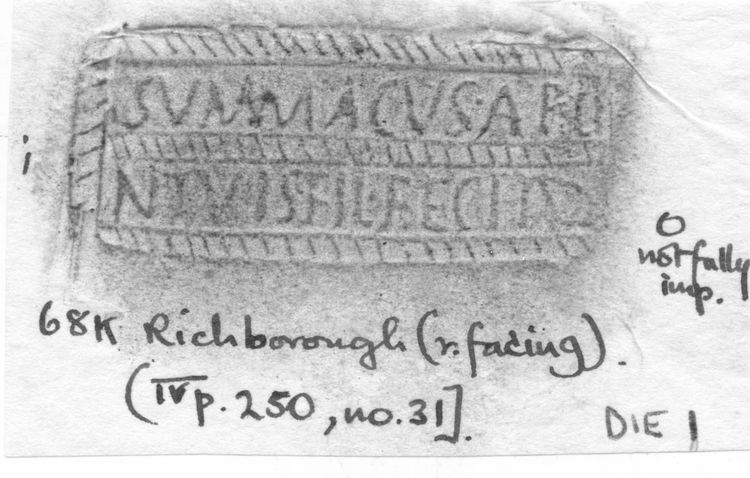 SVMMACVS·A
FIL·FECIT
i
O
not fully
imp.
68K Richborough (r. facing).
(IV p. 250, no. 31].
DIE 1